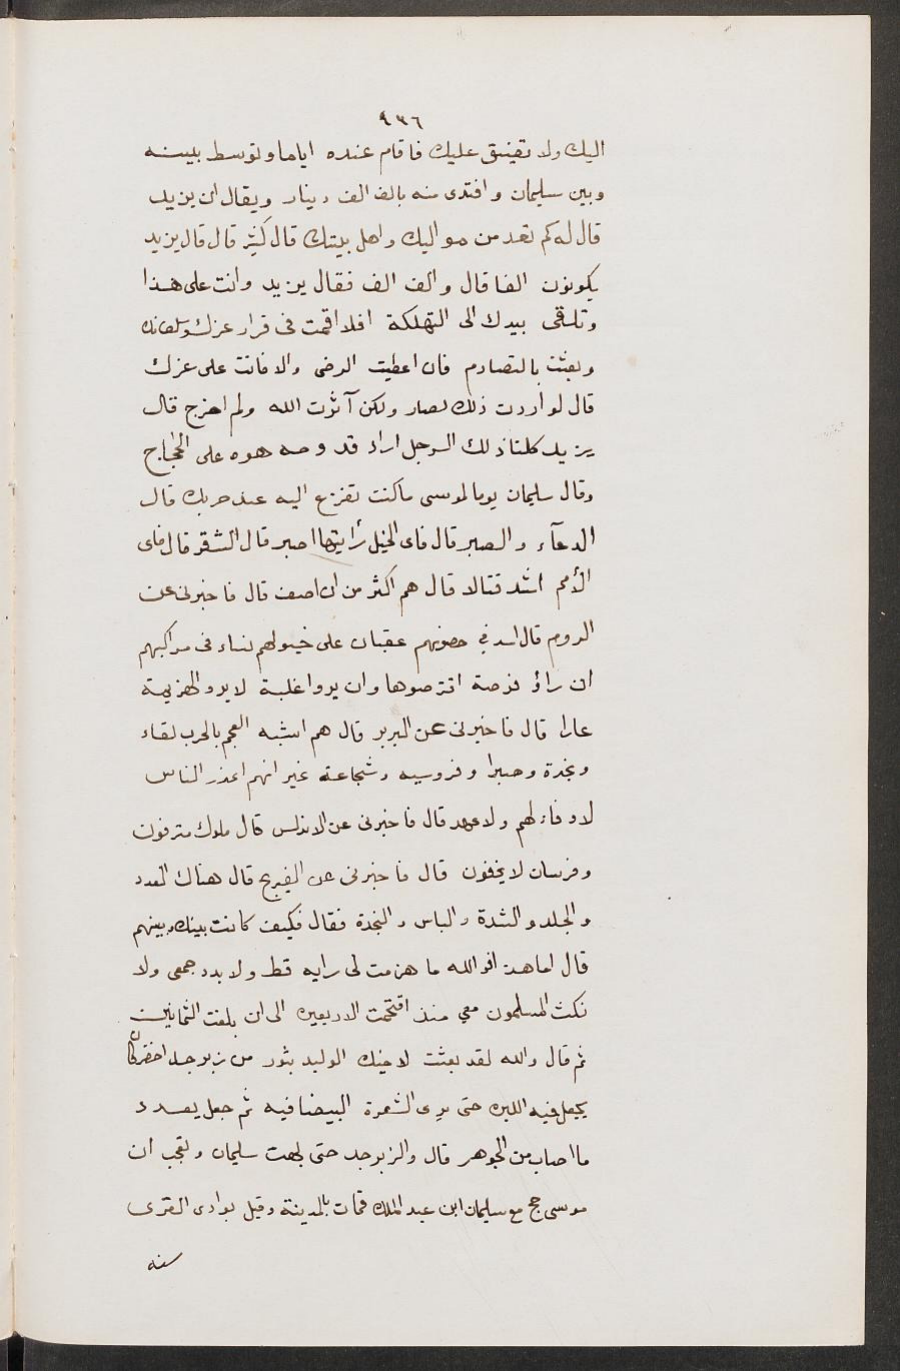 ٩٣٦
اليك ولا تضيق عليك فاقام عنده اياما وتوسط بينه
وبين سليمان وافتدى منه بالف الف دينار ويقال ان يزيد
قال له كم تعد من مواليك واهل بيتك قال كثير قال قال يزيد
يكونون الفا قال والف الف فقال يزيد وانت على هذا
وتلقى بيدك الى التهلكة افلا اقمت فى قرار عزك وسلطانك
وبعثت بالتصادم فان اعطيت الرضى والا فانت على عزك
قال لو اردت ذلك لصار ولكن آثرت الله ولم اخرج قال
يزيد كلنا ذلك الرجل اراد قد ومه هوه على الحجاج
وقال سليمان يوما لموسى ماكنت تفزع اليه عند حربك قال
الدعآء والصبر قال فاى الخيل رأيتها اصبر قال الشقر قال فاى
الأمم اشد قتالا قال هم اكثر من ان اصف قال فاخبرنى عن
الروم قال اسد في حصونهم عقبان على خيولهم نساء فى مراكبهم
ان راؤ فرصة افترصوها وان يروا غلبة لا يرو الهزيمة
عارا قال فاخبرنى عن البربر قال هم اشبه العجم بالعرب لقاء
ونجدة وصبرا وفروسيه وشجاعة غير انهم اغدر الناس
لا وفاء لهم ولا عهد قال فاخبرنى عن الاندلس قال ملوك مترفون
وفرسان لا يخفون قال فاخبرنى عن الفرنج قال هناك العدد
والجلد والشدة والباس والنجدة فقال فكيف كانت بينك وبينهم
قال اما هذ افو الله ما هزمت لى رايه قط ولا بدد جمعى ولا
نكث المسلمون معي منذ اقتحمت الاربعين الى ان بلغت الثمانين
ثم قال والله لقد بعثت لاخيك الوليد بثور من زبرجد اخضر كان
يجعل فيه اللبن حتى يرى الشعرة البيضا فيه ثم جعل يعدد
ما اصاب من الجوهر قال والزبرجد حتى بهت سليمان وتعجب ان
موسى حج مع سليمان ابن عبد الملك فمات بالمدينة وقيل بوادى القرى
سنه